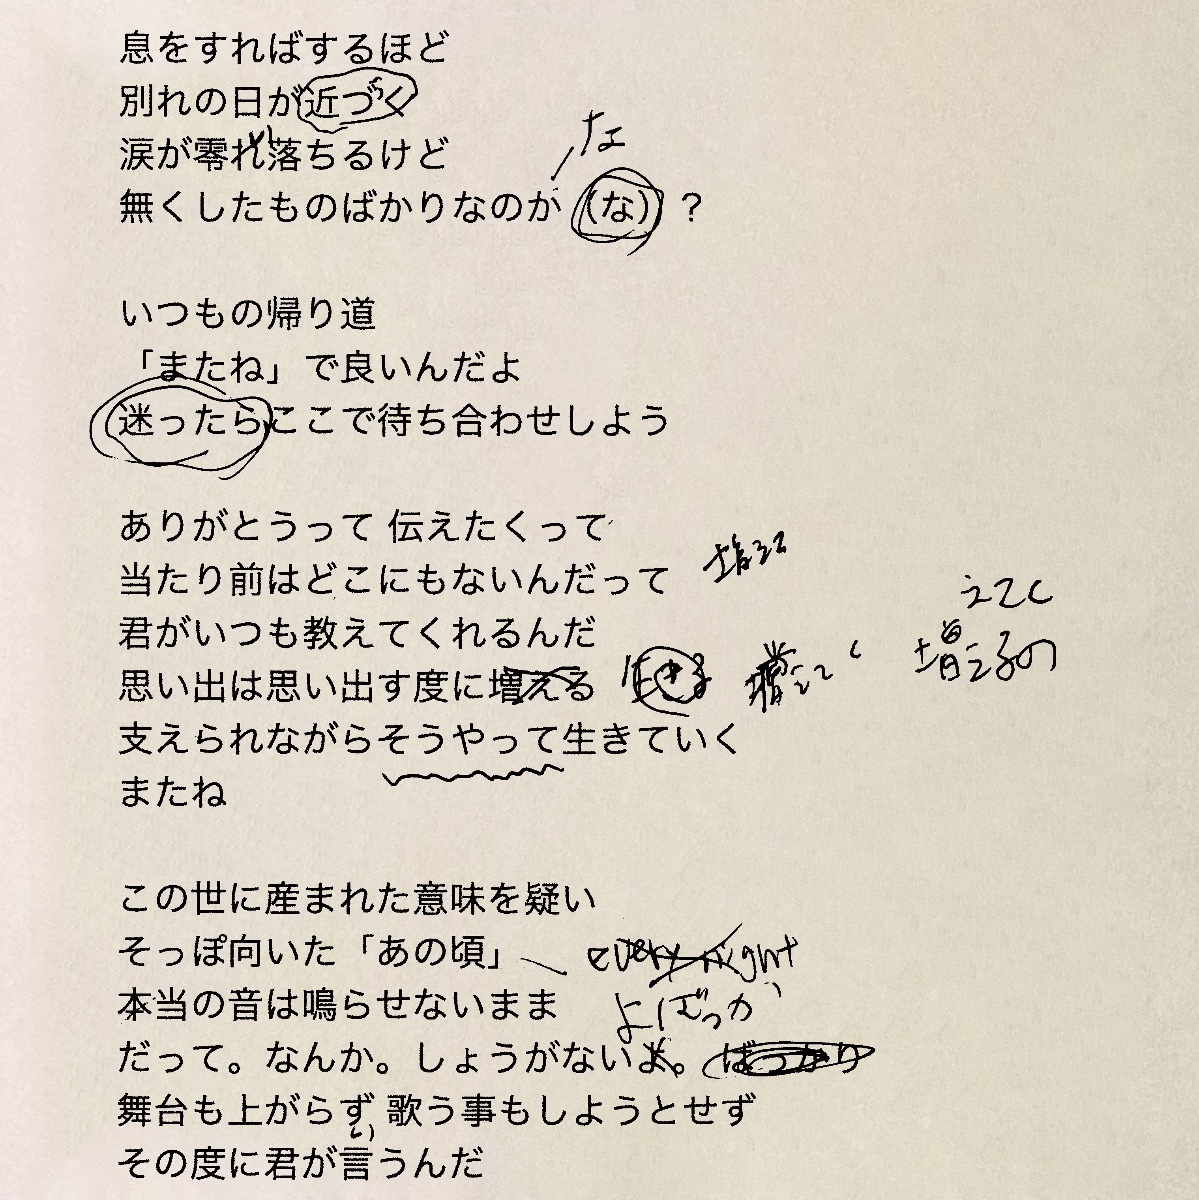 息をすればするほど
別れの日が近づく
涙が零れ落ちるけど
な
無くしたものばかりなのか(な)?
いつもの帰り道
「またね」で良いんだよ
迷ったらここで待ち合わせしよう
ありがとうって 伝えたくって
当たり前はどこにもないんだって
君がいつも教えてくれるんだ
えてく
思い出は思い出す度に増える 増えるの
支えられながらそうやって生きていく
またね
この世に産まれた意味を疑い
そっぽ向いた「あの頃」 every night
本当の音は鳴らせないまま よばっか
だって。なんか。しょうがないよ。 ばっかり
舞台も上がらず 歌う事もしようとせず
その度に君が言うんだ